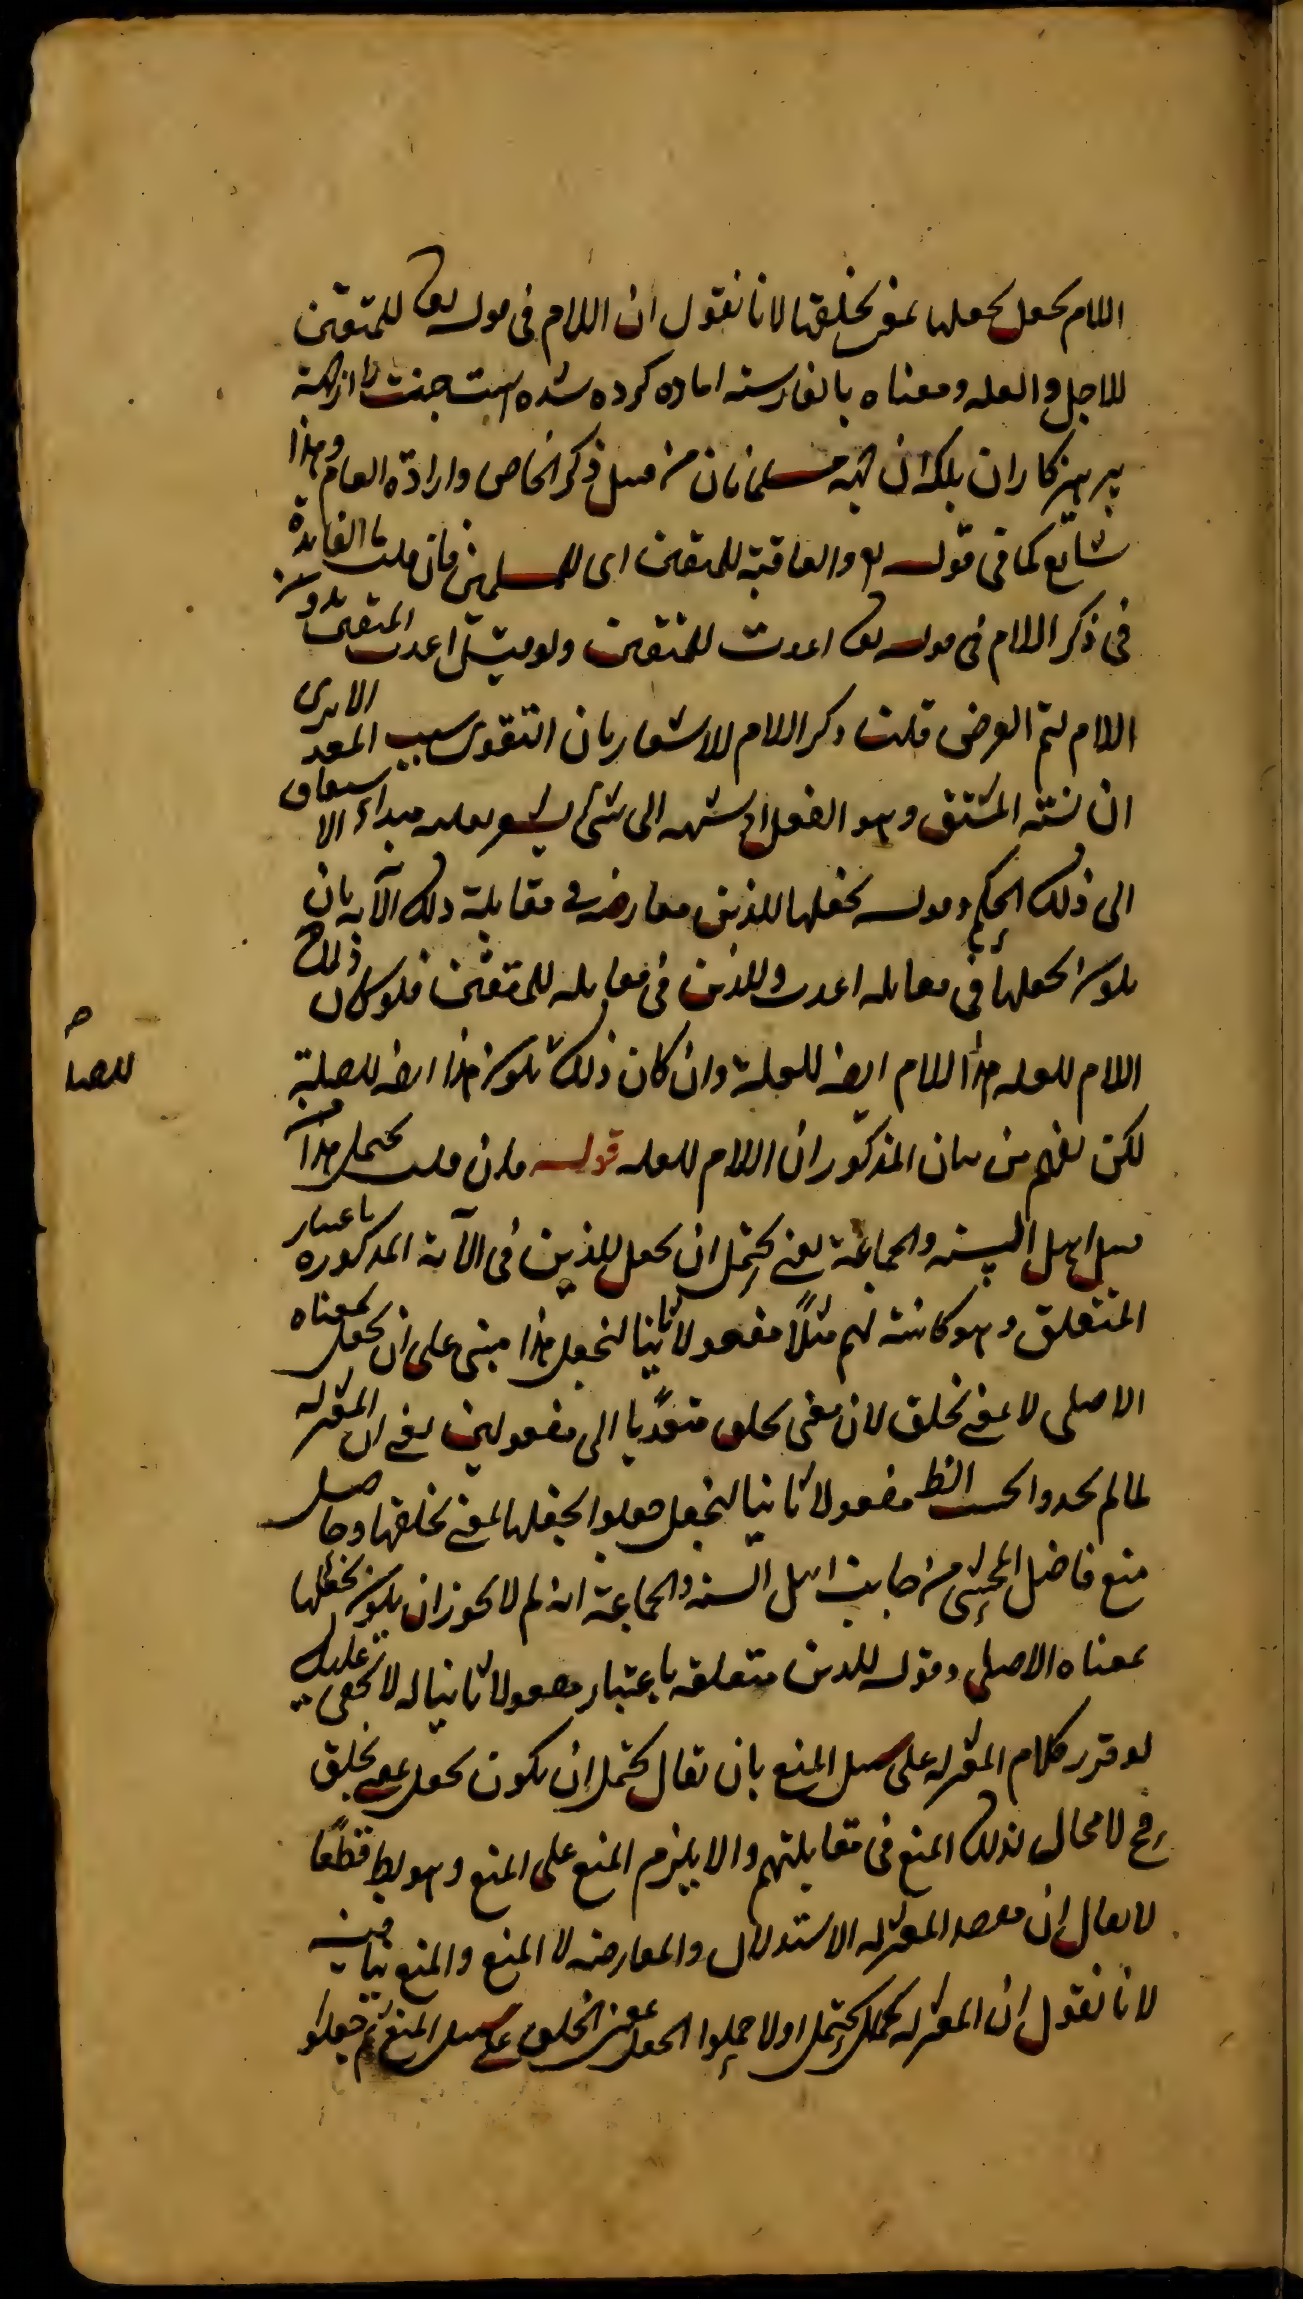 اللام بجعل نجعلها بمعنى نخلقها لانا نقول ان اللام فى قوله تعا للمتقين
للاجل والعلة ومعناه بالفارسية اماده كرده شده است جنت را از جهة
پرهيزكاران بلكه از جهة مسلمانان من قبيل ذكر الخاص وارادة العام وهذا
شايع كما فى قوله تع والعاقبة للمتقين اى للمسلمين فان قلت ما الفايدة
فى ذكر اللام فى قوله تعا اعدت للمتقين ولو قيل اعدت المتقين بدون
اللام لتم الغرض قلت ذكر اللام للاشعار بان التقوى سبب المعد الا يرى
ان نسبة المشتق وهو الفعل او شبهه الى شئ يشعر بعلية مبداء الاشتقاق
الى ذلك الحكم وقوله نجعلها للذين معارضة فى مقابلة ذلك الآية بان
يكون نجعلها فى مقابلة اعدت وللذين فى مقابلة للمتقين فلو كان ذلك
اللام للعلة هذا اللام ايضا للعلة وان كان ذلك يكون هذا ايضا للصلة
للصلة
لكن يفهم من بيان المذكور ان اللام للعلة قوله فان قلت يحتمل هذا من
قبل اهل السنة والجماعة يعنى يحتمل ان يجعل للذين فى الآية المذكورة باعتبار
المتعلق وهو كائنة لهم مثلاً مفعولا ثانيا لنجعل هذا مبنى على ان نجعل بمعناه
الاصلى لا بمعنى نخلق لان معنى نخلق متعديا الى مفعولين يعنى ان المعتزلة
لما لم يجدوا بحسب الظ مفعولا ثانيا لنجعل جعلوا نجعلها بمعنى نخلقها وحاصل
منع فاضل المحشى من جانب اهل السنة والجماعة انه لم لا يجوز ان يكون نجعلها
بمعناه الاصلى وقوله للذين متعلقه باعتبار مفعولا ثانيا له لا يخفى عليك
لو قرر كلام المعتزلة على سبيل المنع بان يقال يحتمل ان يكون نجعل بمعنى نخلق
فح لا مجال لذلك المنع فى مقابلتهم والا يلزم المنع على المنع وهو بط قطعًا
لا يقال ان مقصد المعتزلة الاستدلال والمعارضة لا المنع والمنع ينافيه
لانا نقول ان المعتزلة يحتمل اولا حملوا الجعل بمعنى الخلق على سبيل المنع ثم جعلوا